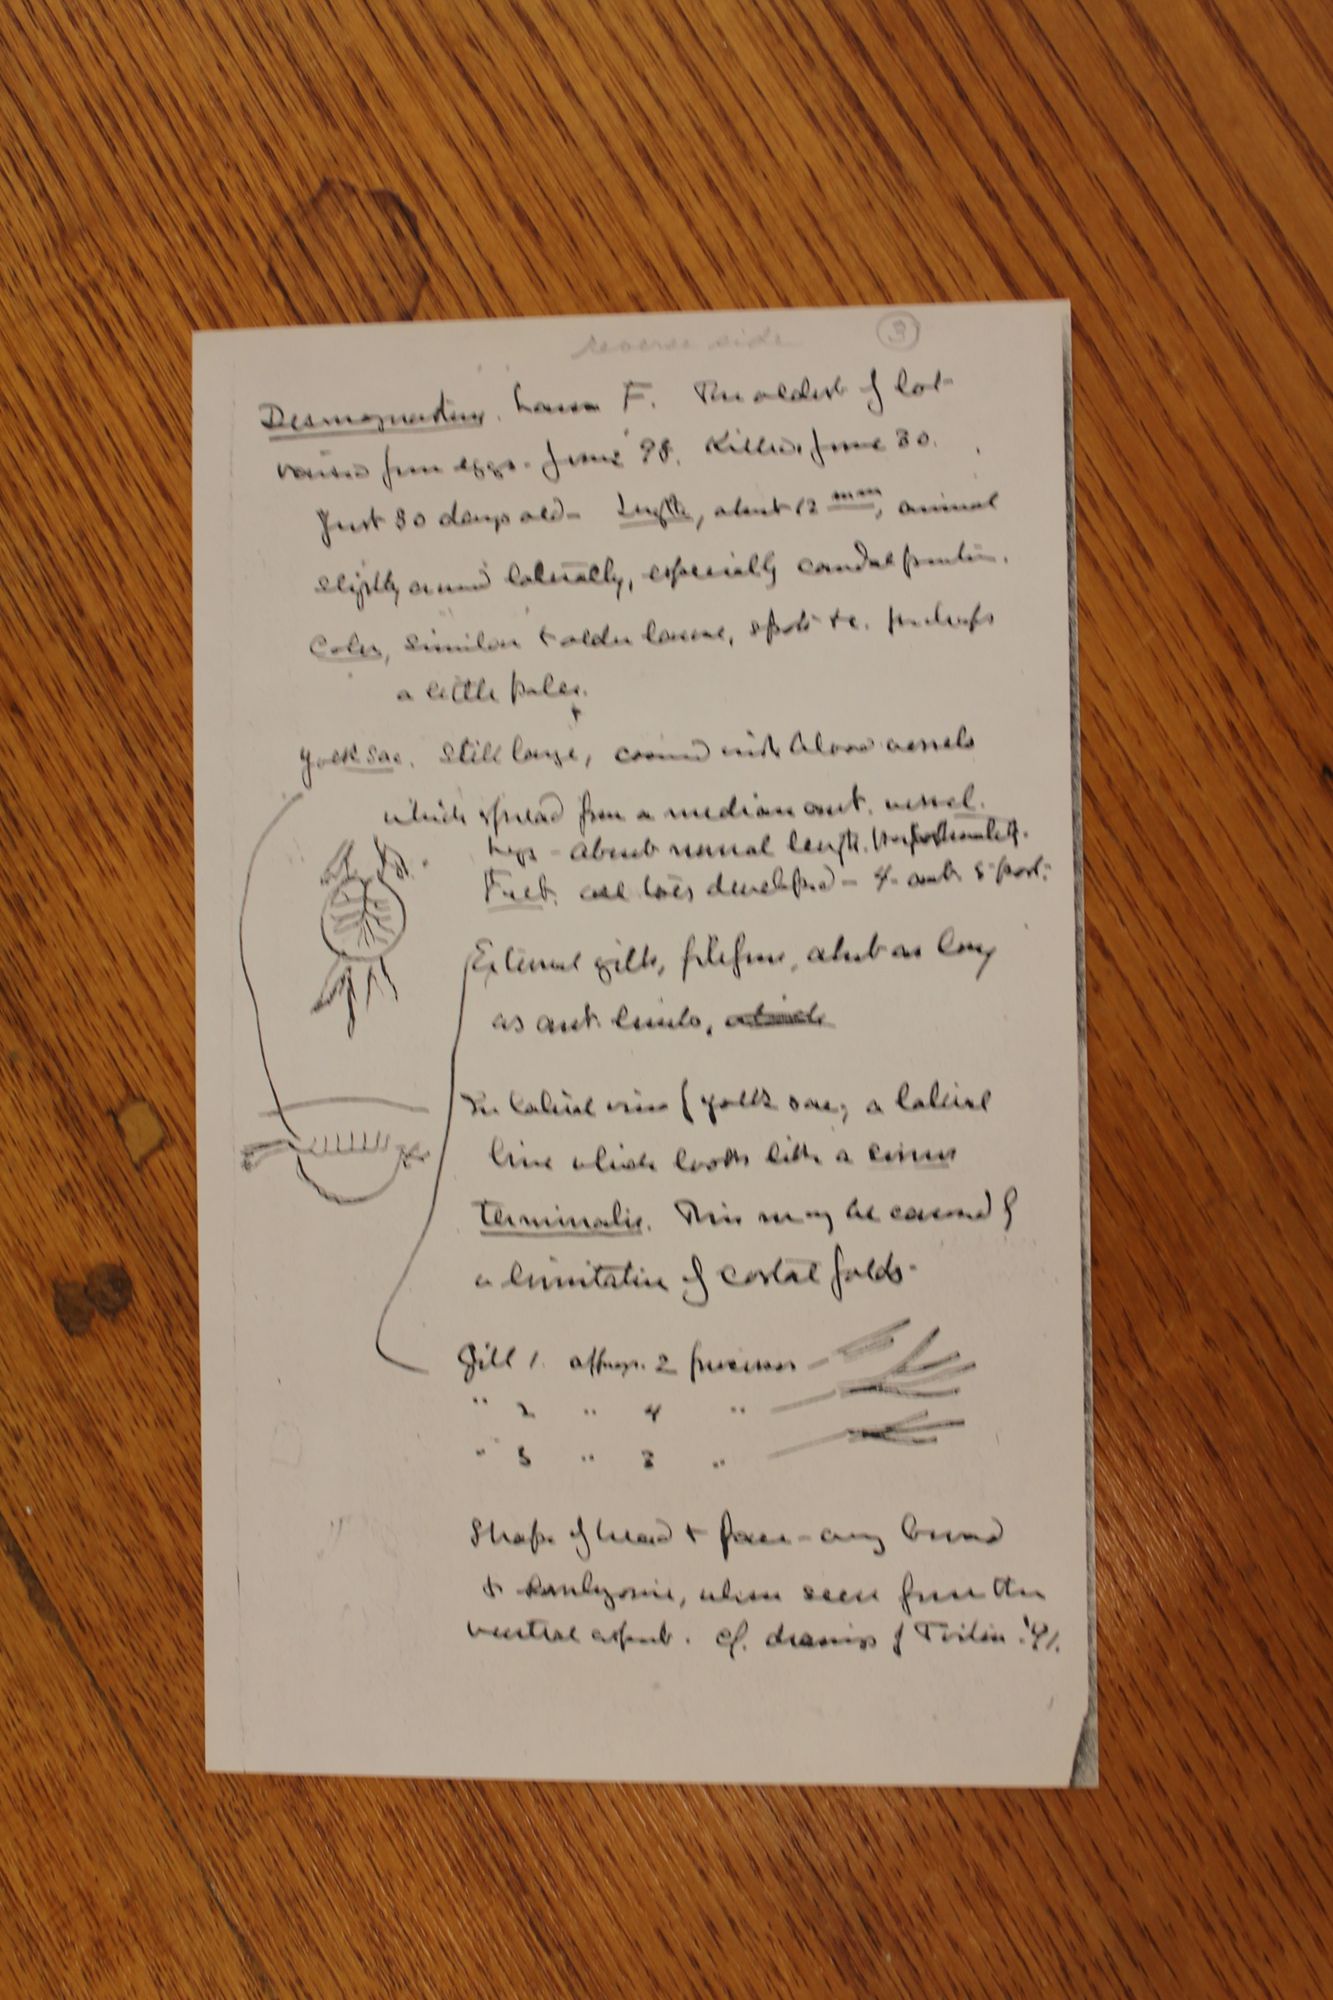 reverse side ③
Desmognathus. Larva F. The oldest of lot
raised from eggs. June '98. Killed June 30.
Just 30 days old - Length, about 12 mm, animal
slightly curved laterally, especially caudal portion.
Color, similar to older larvae, spots etc. perhaps
a little paler.
Yolk sac. Still large, covered with blood vessels
which spread from a median ant. vessel.
Legs - about normal length
Feet. all toes developed - 4 ant. 5 post.
External gills, filiform, about as long
as ant. limbs,
In lateral view of yolk sac, a lateral
line which looks like a sinus
terminalis. This may be caused by
a limitation of costal folds.
Gill 1. approx. 2 processes -
" 2 " 4 "
" 3 " 3 "
Shape of head & face - very broad
& embryonic, when seen from the
ventral aspect. cf. drawings of